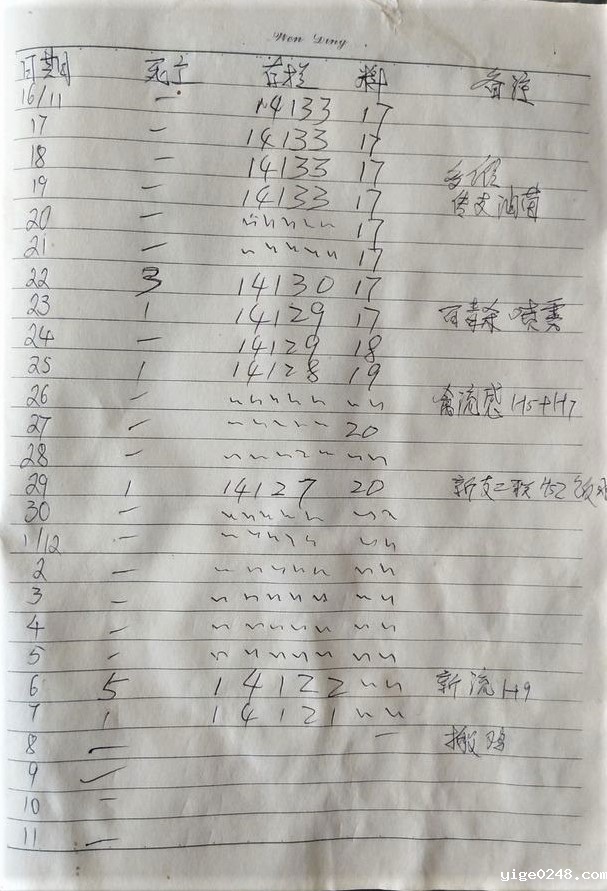 Wen Ding
日期 死亡 存栏 料 备注
16/11 — 14133 17
17 — 14133 17
18 — 14133 17
19 — 14133 17 传支油苗
20 — 〃〃〃〃〃 17
21 — 〃〃〃〃〃 17
22 3 14130 17
23 1 14129 17 喷雾
24 — 14129 18
25 1 14128 19
26 — 〃〃〃〃〃 〃〃 禽流感 H5+H7
27 — 〃〃〃〃〃 20
28 — 〃〃〃〃〃 〃〃
29 1 14127 20 新支二联
30 — 〃〃〃〃〃 〃〃
1/12 — 〃〃〃〃〃 〃〃
2 — 〃〃〃〃〃 〃〃
3 — 〃〃〃〃〃 〃〃
4 — 〃〃〃〃〃 〃〃
5 — 〃〃〃〃〃 〃〃
6 5 14122 〃〃 新流H9
7 1 14121 〃〃
8 — — 搬鸡
9 —
10 —
11 —
yige0248.com